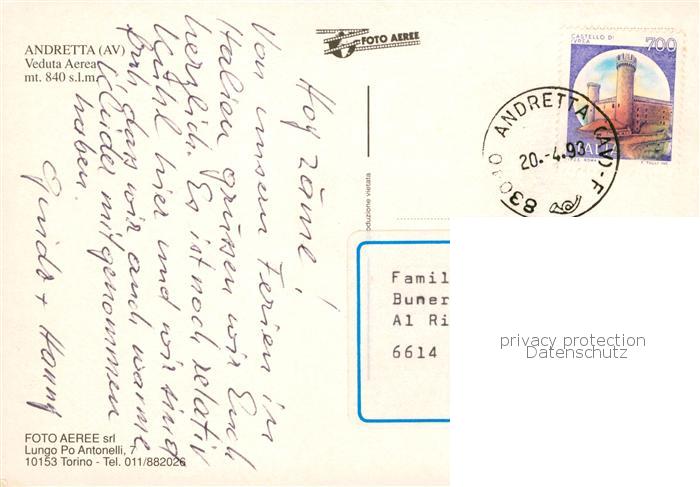 ANDRETTA (AV)
Veduta Aerea
mt. 840 s.l.m.
FOTO AEREE
CASTELLO DI
IVREA
700
ITALIA
83040 ANDRETTA (AV)-F
20.-4.93
Hoj zäme!
Von unsern Ferien in
Italien grüssen wir Euch
herzlich. Es ist noch relativ
kühl hier und wir sind
froh, dass wir auch warme
Kleider mitgenommen
haben.
Guido + Hanny
oduzione vietata
Famil
Buner
Al Ri
6614
privacy protection
Datenschutz
FOTO AEREE srl
Lungo Po Antonelli, 7
10153 Torino - Tel. 011/882026